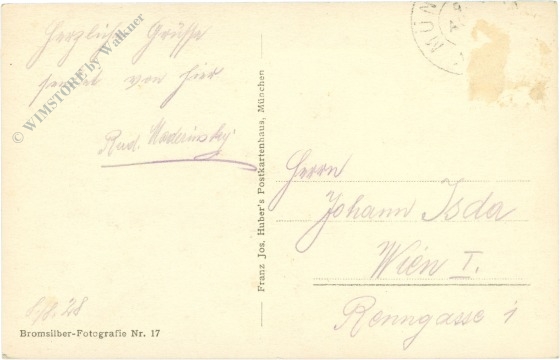 Herzliche Grüsse
sendet von hier
Rud. Woderinsky.
Herrn
Johann Isda
Wien I.
Renngasse 1
28
Bromsilber-Fotografie Nr. 17
Franz Jos. Huber's Postkartenhaus, München
MÜN
© WIMSTORE by Walkner